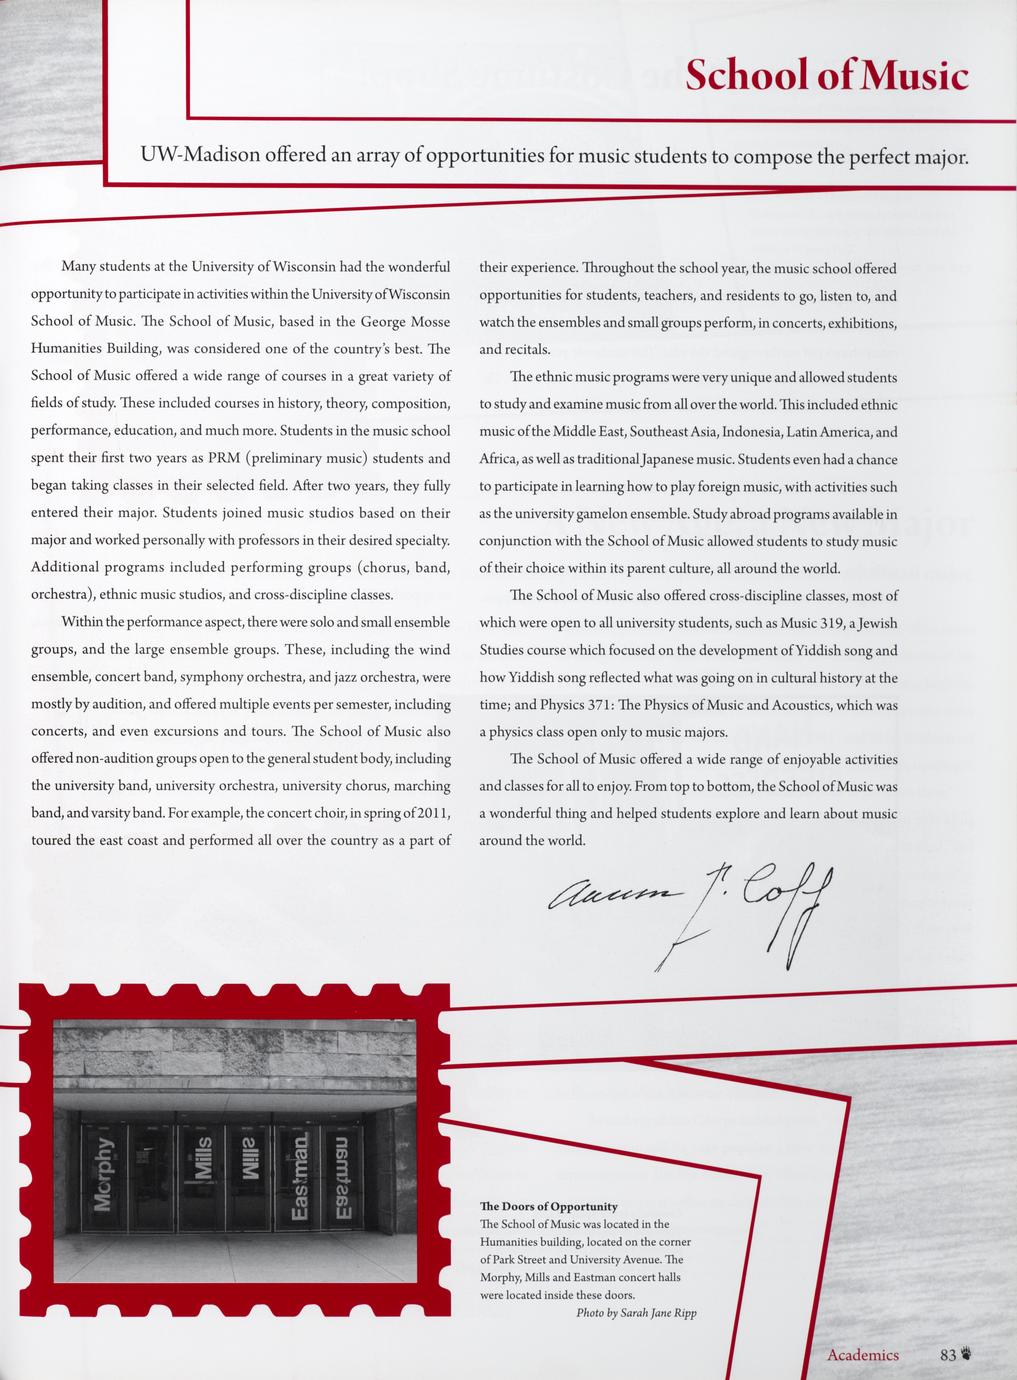 School of Music
UW-Madison offered an array of opportunities for music students to compose the perfect major.
Many students at the University of Wisconsin had the wonderful
opportunity to participate in activities within the University of Wisconsin
School of Music. The School of Music, based in the George Mosse
Humanities Building, was considered one of the country's best. The
School of Music offered a wide range of courses in a great variety of
fields of study. These included courses in history, theory, composition,
performance, education, and much more. Students in the music school
spent their first two years as PRM (preliminary music) students and
began taking classes in their selected field. After two years, they fully
entered their major. Students joined music studios based on their
major and worked personally with professors in their desired specialty.
Additional programs included performing groups (chorus, band,
orchestra), ethnic music studios, and cross-discipline classes.
Within the performance aspect, there were solo and small ensemble
groups, and the large ensemble groups. These, including the wind
ensemble, concert band, symphony orchestra, and jazz orchestra, were
mostly by audition, and offered multiple events per semester, including
concerts, and even excursions and tours. The School of Music also
offered non-audition groups open to the general student body, including
the university band, university orchestra, university chorus, marching
band, and varsity band. For example, the concert choir, in spring of 2011,
toured the east coast and performed all over the country as a part of
their experience. Throughout the school year, the music school offered
opportunities for students, teachers, and residents to go, listen to, and
watch the ensembles and small groups perform, in concerts, exhibitions,
and recitals.
The ethnic music programs were very unique and allowed students
to study and examine music from all over the world. This included ethnic
music of the Middle East, Southeast Asia, Indonesia, Latin America, and
Africa, as well as traditional Japanese music. Students even had a chance
to participate in learning how to play foreign music, with activities such
as the university gamelon ensemble. Study abroad programs available in
conjunction with the School of Music allowed students to study music
of their choice within its parent culture, all around the world.
The School of Music also offered cross-discipline classes, most of
which were open to all university students, such as Music 319, a Jewish
Studies course which focused on the development of Yiddish song and
how Yiddish song reflected what was going on in cultural history at the
time; and Physics 371: The Physics of Music and Acoustics, which was
a physics class open only to music majors.
The School of Music offered a wide range of enjoyable activities
and classes for all to enjoy. From top to bottom, the School of Music was
a wonderful thing and helped students explore and learn about music
around the world.
Morphy
Mills
Mills
Eastman
Eastman
The Doors of Opportunity
The School of Music was located in the
Humanities building, located on the corner
of Park Street and University Avenue. The
Morphy, Mills and Eastman concert halls
were located inside these doors.
Photo by Sarah Jane Ripp
Academics 83